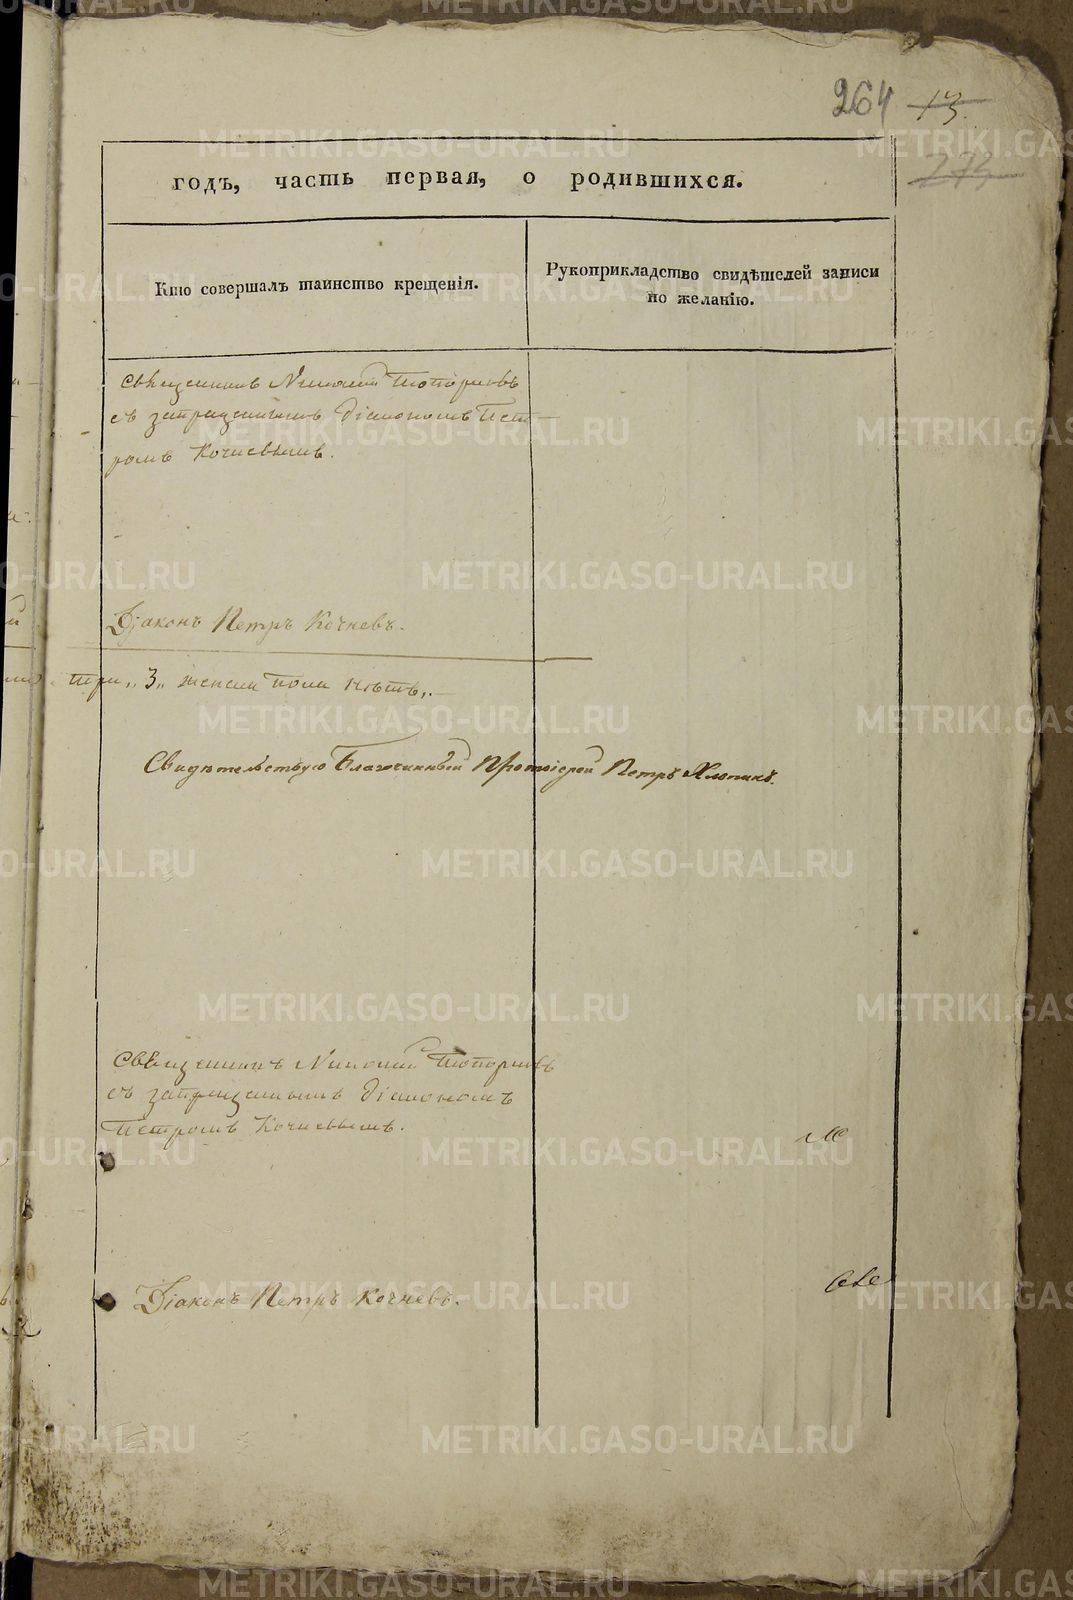 264 13.
273
годъ, часть первая, о родившихся.
Кто совершалъ таинство крещенія.
Рукоприкладство свидѣтелей записи
по желанію.
Священникъ Николай Топорковъ
съ запрещеннымъ діакономъ Пет-
ромъ Кочневымъ.
Діаконъ Петръ Кочневъ.
три „3„ женска пола нѣтъ.
Свидѣтельствую Благочинный Протоіерей Петръ Хлопинъ.
Священникъ Николай Топорковъ
съ запрещеннымъ діакономъ
Петромъ Кочневымъ.
Діаконъ Петръ Кочневъ.
METRIKI.GASO-URAL.RU